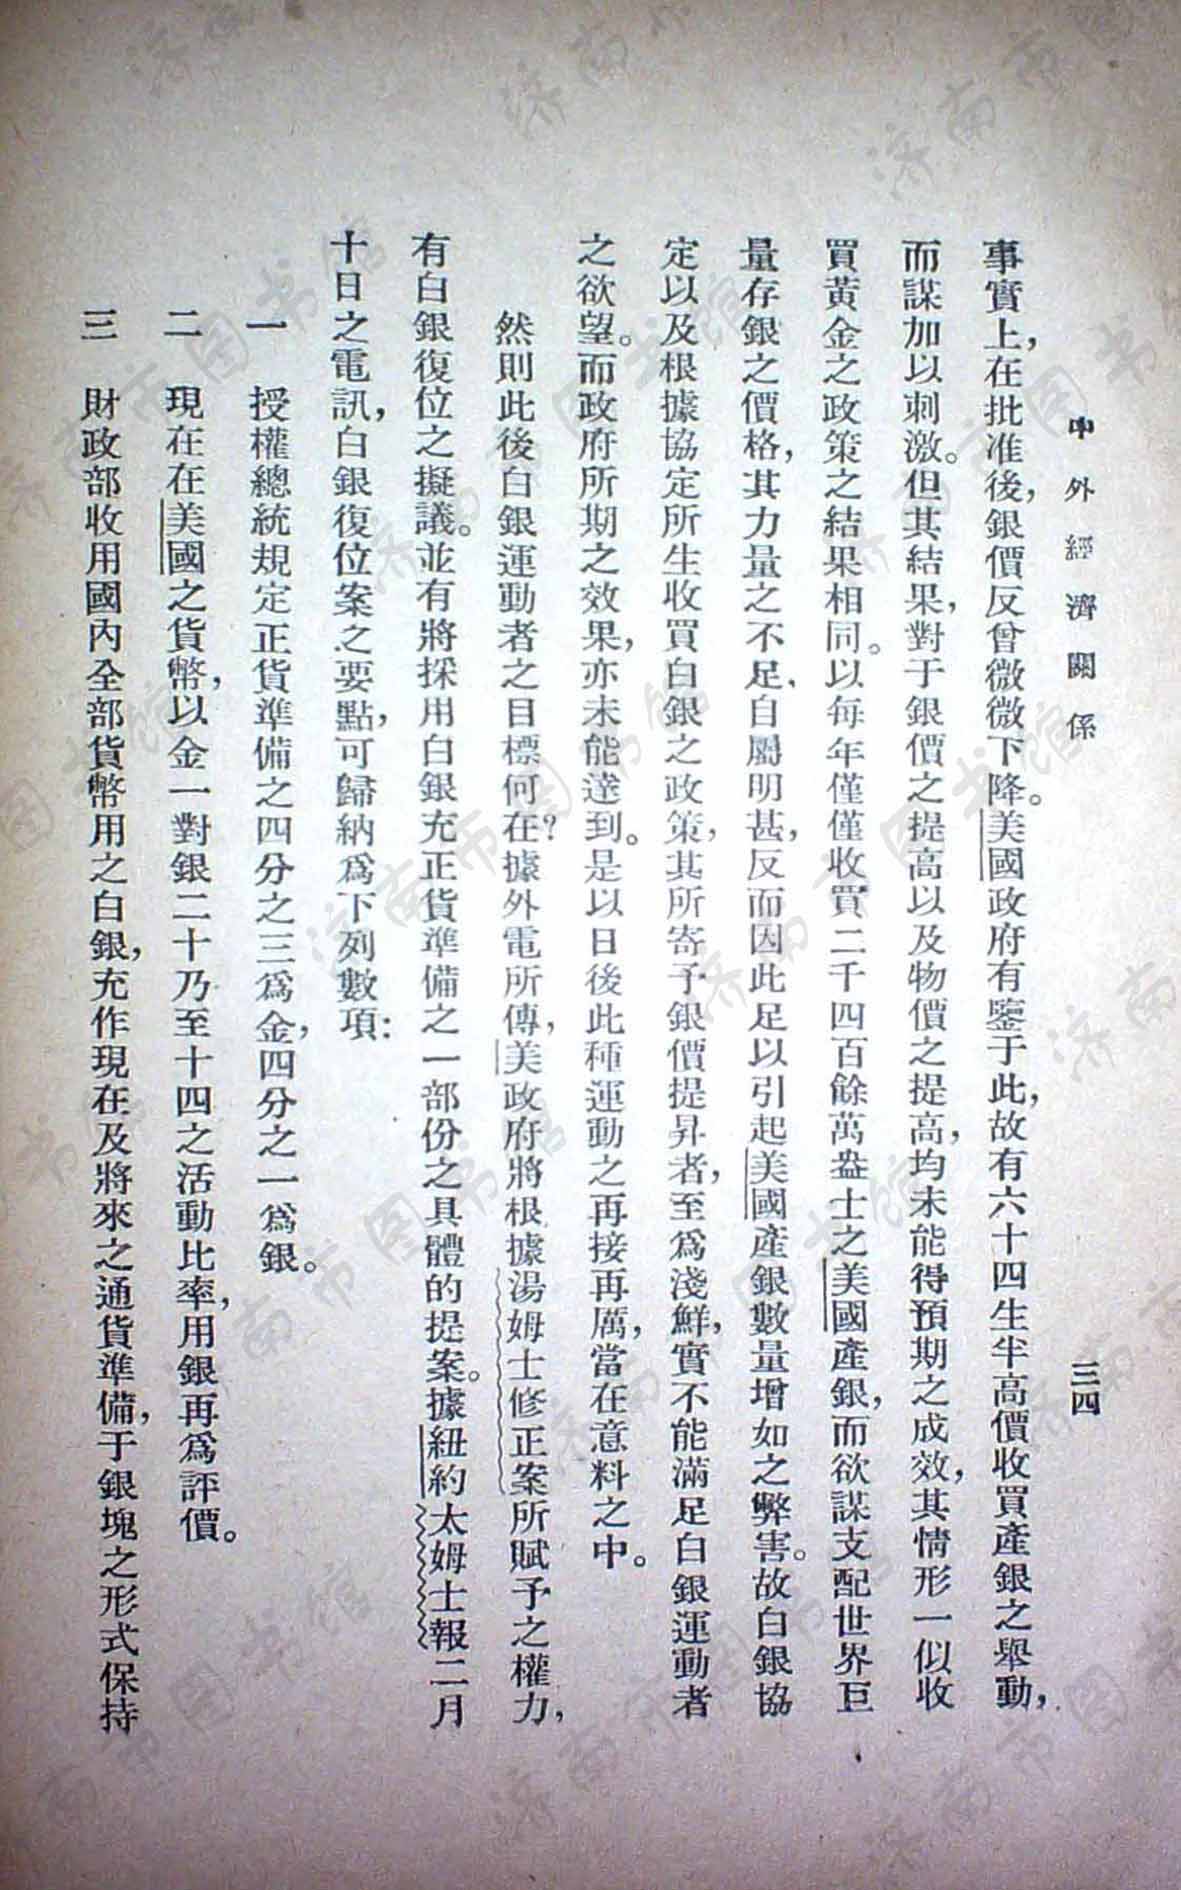 中外經濟關係
三四
事實上，在批准後，銀價反曾微微下降。美國政府有鑒于此，故有六十四生半高價收買產銀之舉動，
而謀加以刺激。但其結果，對于銀價之提高以及物價之提高，均未能得預期之成效，其情形一似收
買黃金之政策之結果相同。以每年僅僅收買二千四百餘萬盎士之美國產銀，而欲謀支配世界巨
量存銀之價格，其力量之不足、自屬明甚，反而因此足以引起美國產銀數量增如之弊害。故白銀協
定以及根據協定所生收買白銀之政策，其所寄予銀價提昇者，至爲淺鮮，實不能滿足白銀運動者
之欲望。而政府所期之效果，亦未能達到。是以日後此種運動之再接再厲，當在意料之中。
然則此後白銀運動者之目標何在？據外電所傳，美政府將根據湯姆士修正案所賦予之權力，
有白銀復位之擬議。並有將採用白銀充正貨準備之一部份之具體的提案。據紐約太姆士報二月
十日之電訊，白銀復位案之要點，可歸納爲下列數項：
一　授權總統規定正貨準備之四分之三爲金，四分之一爲銀。
二　現在在美國之貨幣，以金一對銀二十乃至十四之活動比率，用銀再爲評價。
三　財政部收用國內全部貨幣用之白銀，充作現在及將來之通貨準備，于銀塊之形式保持
济南市图书馆